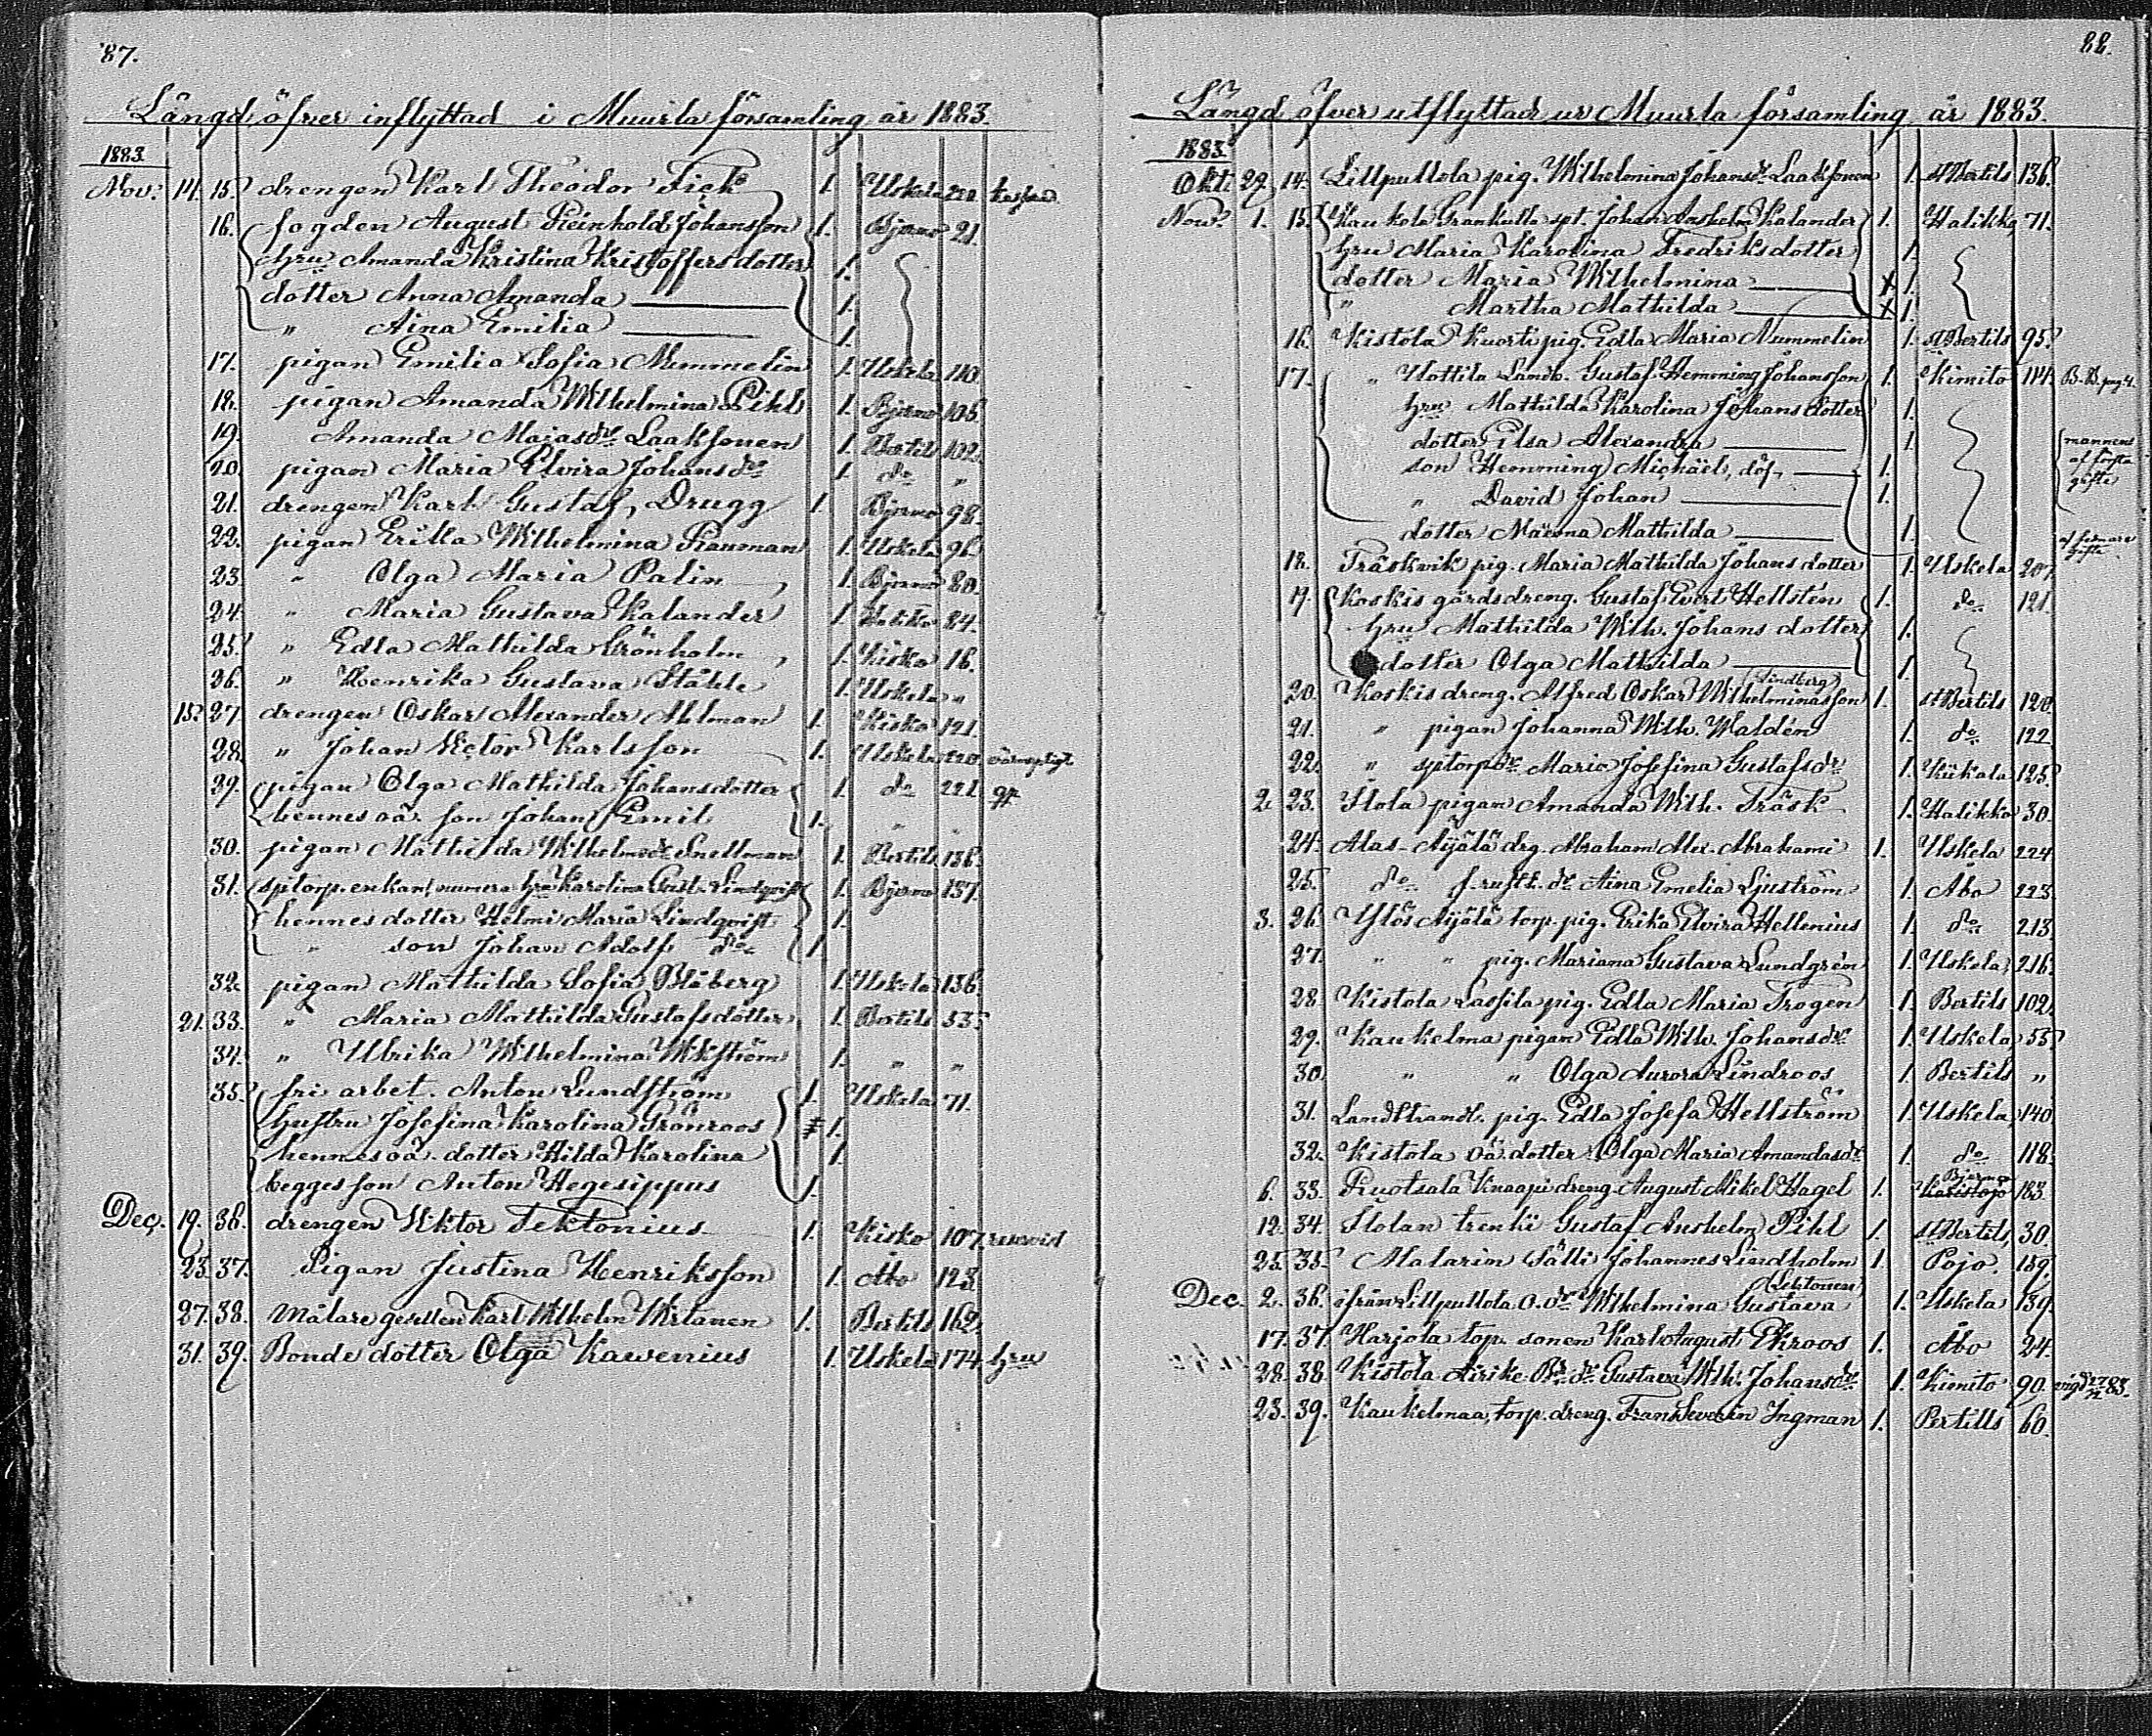 87.
Längd öfver inflyttad i Muurla församling år 1883.
1883.
Nov. 14. 15. drengen Karl Theodor Fick 1. Uskela 220.
16. fogden August Reinhold Johansson 1. Bjerno 21.
hru Amanda Kristina Kristoffersdotter 1.
dotter Anna Amanda 1.
" Aina Emilia 1.
17. pigan Emilia Sofia Nummelin 1. Uskela 110.
18. pigan Amanda Wilhelmina Pihl 1. Bjerno 106.
19. Amanda Majasdr Laaksonen 1. Bertils 102.
20. pigan Maria Elvira Johansdr 1. do "
21. drengen Karl Gustaf Drugg 1. Bjerno 98.
22. pigan Erika Wilhelmina Rauman 1. Uskela 96.
23. " Olga Maria Palin 1. Bjerno 80.
24. " Maria Gustava Kalander 1. 84.
25. " Edla Mathilda Grönholm 1. Kisko 16.
26. " Henrika Gustava Ståhle 1. Uskela "
15. 27. drengen Oskar Alexander Ahlman 1. Kisko 121.
28. " Johan Victor Karlsson 1. Uskela 220. värnepligt
29. pigan Olga Mathilda Johansdotter 1. do 221.
hennes oä. son Johan Emil 1. "
30. pigan Mathilda Wilhelmdr Snellman 1. Bertils 136.
31. sptorp. enkan, numera hru Karolina Gust. Lindqvist 1. Bjerno 137.
hennes dotter Helmi Maria Lindqvist 1.
" son Johan Adolf do 1.
32. pigan Mathilda Sofia Blåberg 1. Uskela 136.
21. 33. " Maria Mathilda Gustafsdotter 1. Bertils 55.
34. " Ulrika Wilhelmina Wikström 1. " "
35. fri arbet. Anton Lundström 1. Uskela 71.
hustru Josefina Karolina Grönroos 1.
hennes oä. dotter Hilda Karolina 1.
begges son Anton Hegesippus 1.
Dec. 19. 36. drengen Viktor Tektonius 1. Kisko 107. reservist
23. 37. Pigan Justina Henriksson 1. Åbo 123.
27. 38. Målare gesellen Karl Wilhelm Wirtanen 1. Bertils 162.
31. 39. Bonde dotter Olga Kawenius 1. Uskela 174. hru
88.
Längd öfver utflyttad ur Muurla församling år 1883.
1883.
Okt. 29. 14. Lillpullola pig. Wilhelmina Johansdr Laaksonen 1. St Bertils 136.
Nov. 1. 15. Kaukola Grankulla spt. Johan Anshelm Kalander 1. Halikko 71.
hru Maria Karolina Fredriksdotter 1.
dotter Maria Wilhelmina x 1.
" Martha Mathilda x 1.
16. Kistola Kuorti pig. Edla Maria Nummelin 1. St Bertils 95.
17. " Uottila Landb. Gustaf Hemming Johansson 1. Kimito 114. B.B. pag. 4.
hru Mathilda Karolina Johansdotter 1.
dotter Elsa Alexandra 1. mannens
son Hemming Michäel, döf, 1. af första
gifte
" David Johan 1.
dotter Naëma Mathilda 1. af sednare
gifte
18. Träskvik pig. Maria Mathilda Johansdotter 1. Uskela 207.
19. Koskis gårdsdreng. Gustaf Evert Hellstén 1. do 121.
hru Mathilda Wilh. Johansdotter 1.
dotter Olga Mathilda 1.
(Lindberg)
20. Koskis dreng. Alfred Oskar Wilhelminasson 1. St Bertils 120.
21. " pigan Johanna Wilh. Waldén 1. do 122
22. " sptorpdr Maria Josefina Gustafsdr 1. Kiikala 125.
2. 23. Ilola pigan Amanda Wilh. Träsk 1. Halikko 30.
24. Alas-Äijälä drg. Abraham Alex. Abrahami 1. Uskela 224
25. do f. rustb. dr Aina Emelia Ljuström 1. Åbo 223.
3. 26. Ylös Äijälä torp. pig. Erika Elvira Hellenius 1. do 213.
27. " " pig. Mariana Gustava Lundgrén 1. Uskela 216.
28. Kistola Lassila pig. Edla Maria Trogen 1. Bertils 102.
29. Kaukelma pigan Edla Wilh. Johansdr 1. Uskela 55.
30. " " Olga Aurora Lindroos 1. Bertils "
31. Landthandl. pig. Edla Josefa Hellström 1. Uskela 140
32. Kistola oä. dotter Olga Maria Amandasdr 1. do 118.
Bjerno
6. 33. Ruotsala Knaapi dreng August Mikel Hagel 1. Karislojo 183.
12. 34. Ilolan trenki Gustaf Anshelm Pihl 1. St Bertils, 30.
25. 35. Matarin Sälli Johannes Lindholm 1. Pojo. 159.
(Lehtonen)
Dec. 2. 36. ifrån Lillpullola o. dr Wilhelmina Gustava 1. Uskela 139.
17. 37. Harjola torp. sonen Karl August Ekroos 1. Åbo 24.
28. 38. Kistola Äirike Bd. dr Gustava Wilh. Johansdr 1. Kimito 90.
23. 39. Kaukelmaa, torp. dreng. Frans Severin Ingman 1. Pertills 60.